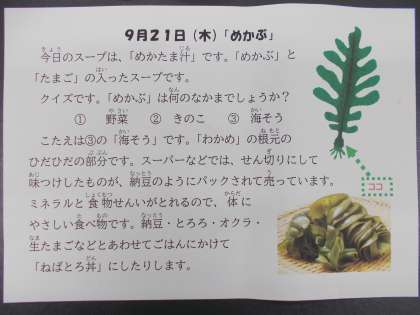 9月21日（木）「めかぶ」
今日のスープは、「めかたま汁」です。「めかぶ」と
「たまご」の入ったスープです。
クイズです。「めかぶ」は何のなかまでしょうか？
①　野菜　②　きのこ　③　海そう
こたえは③の「海そう」です。「わかめ」の根元の
ひだひだの部分です。スーパーなどでは、せん切りにして
味つけしたものが、納豆のようにパックされて売っています。
ミネラルと食物せんいがとれるので、体に
やさしい食べ物です。納豆・とろろ・オクラ・
生たまごなどとあわせてごはんにかけて
「ねばとろ丼」にしたりします。
ココ